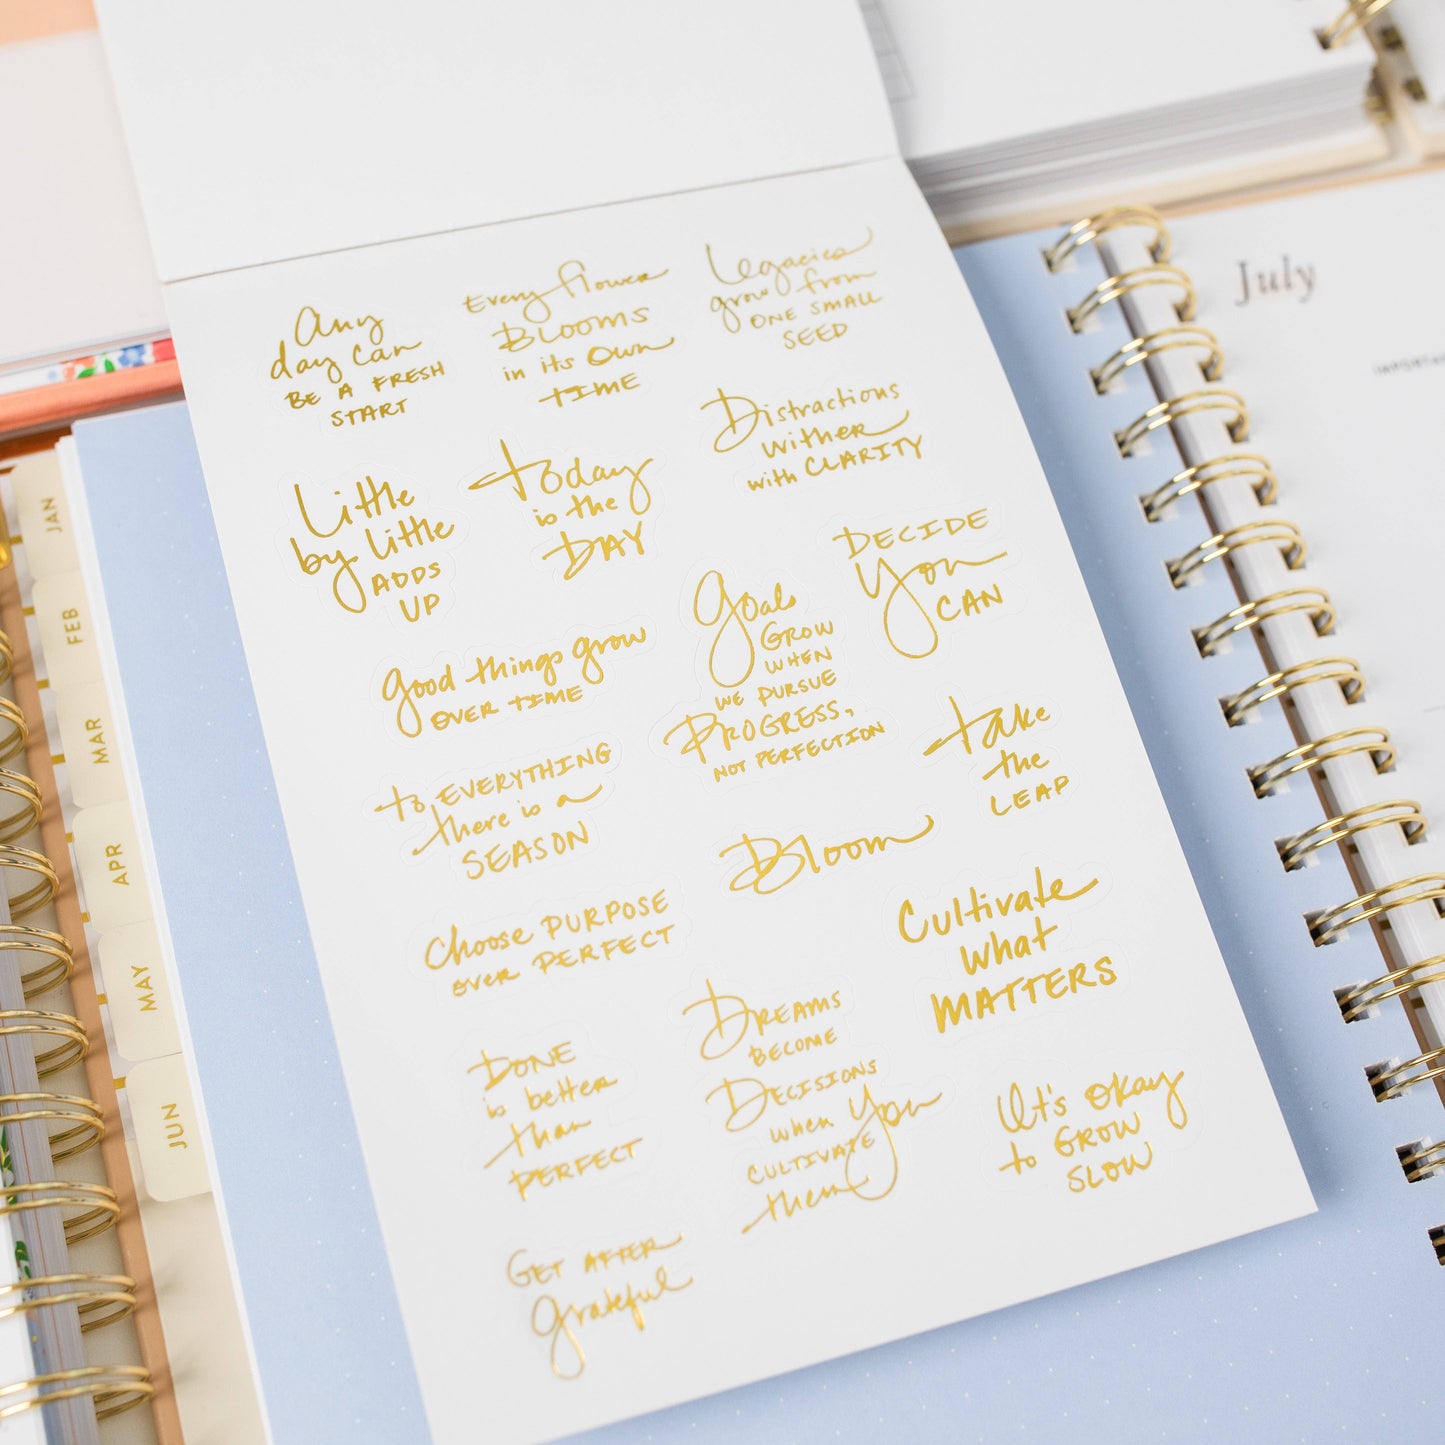 Any
day can
BE A FRESH
START
Every flower
BLOOMS
in its own
TIME
Legacies
grow from
ONE SMALL
SEED
Little
by little
ADDS
UP
today
is the
DAY
Distractions
wither
with CLARITY
DECIDE
You
CAN
good things grow
OVER TIME
Goals
GROW
WHEN
WE PURSUE
PROGRESS,
NOT PERFECTION
take
the
LEAP
to EVERYTHING
there is a
SEASON
Bloom
Choose PURPOSE
over PERFECT
Cultivate
what
MATTERS
DONE
is better
than
PERFECT
DREAMS
BECOME
DECISIONS
when You
CULTIVATE
them
It's okay
to GROW
SLOW
GET AFTER
grateful
JAN
FEB
MAR
APR
MAY
JUN
July